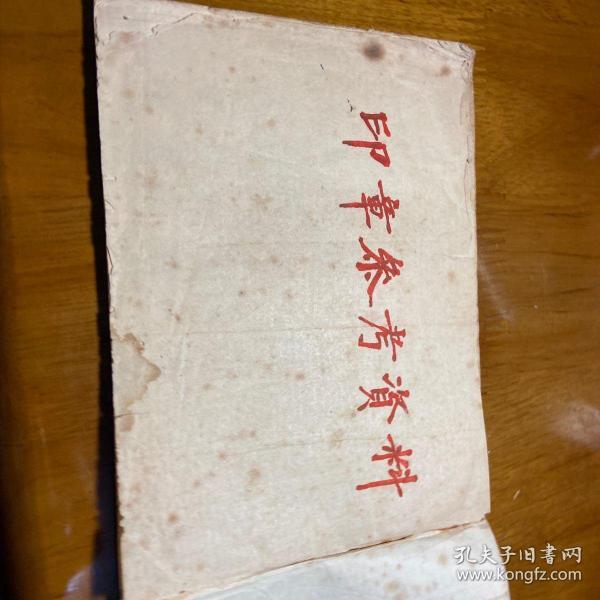 印章参考資料
孔夫子旧書网
www.kongfz.com